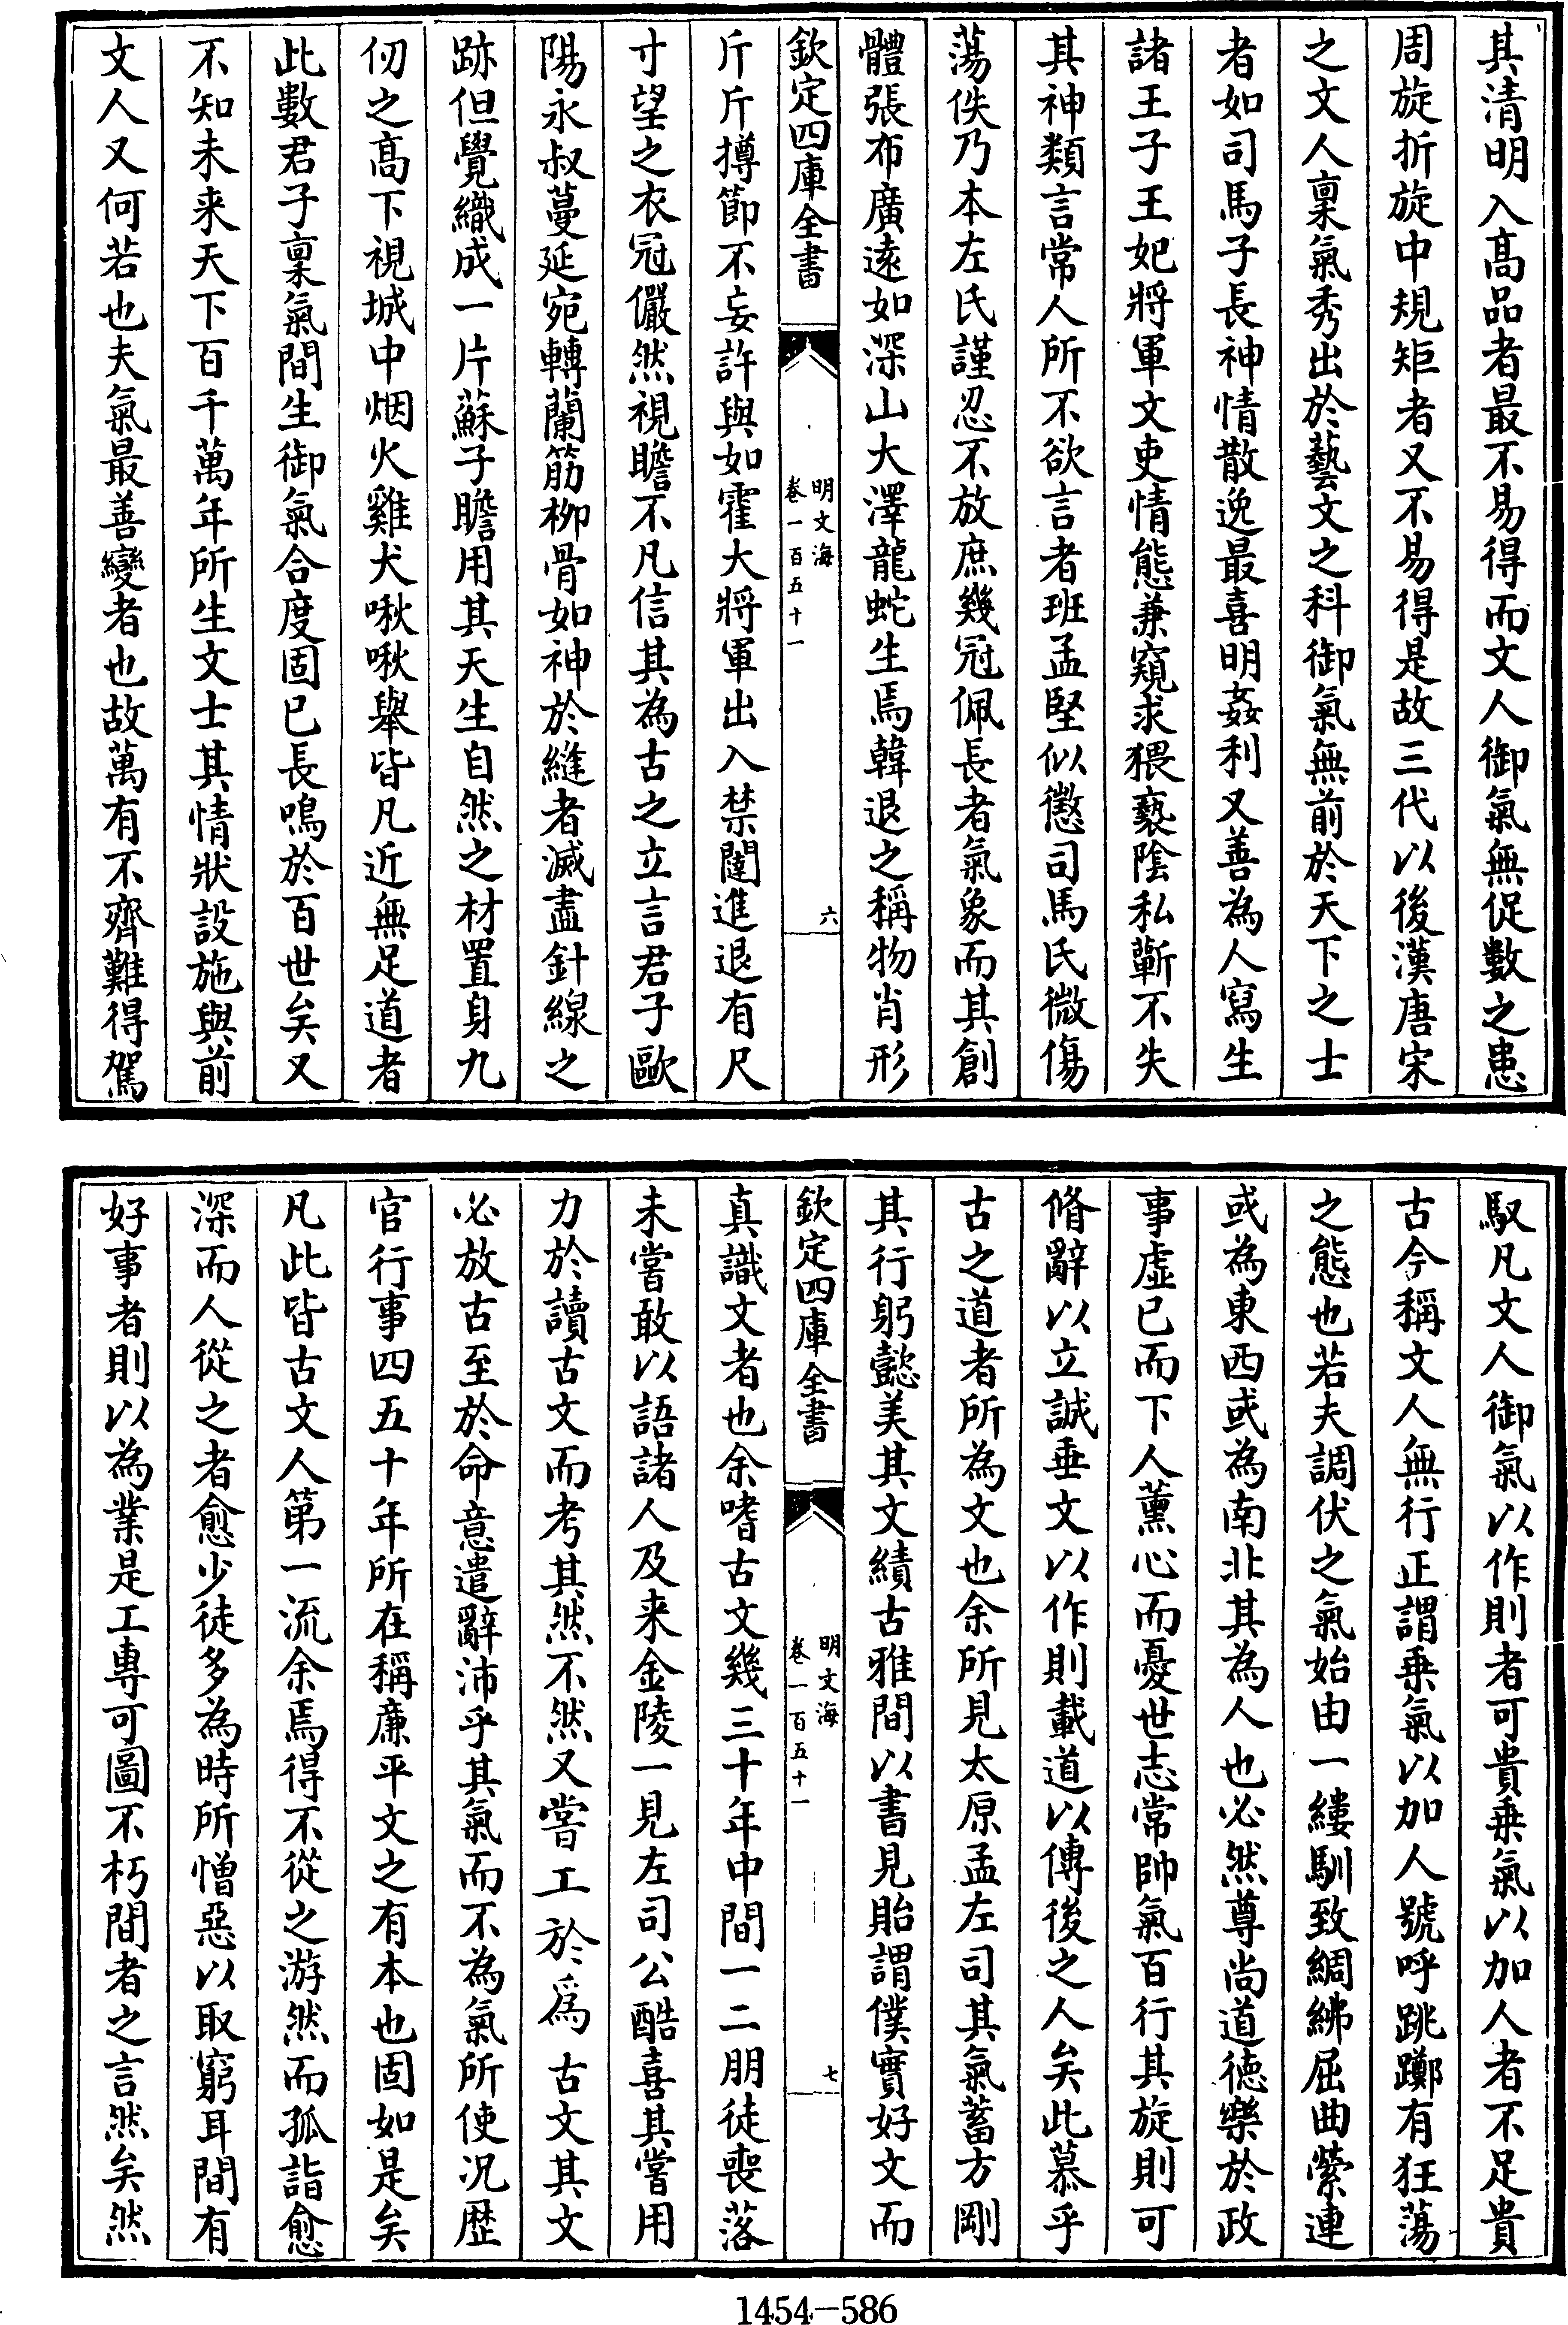 其清明入高品者最不易得而文人御氣無促數之患
周旋折旋中規矩者又不易得是故三代以後漢唐宋
之文人稟氣秀出於藝文之科御氣無前於天下之士
者如司馬子長神情散逸最喜明姦利又善為人寫生
諸王子王妃將軍文吏情態兼窺求猥褻陰私蘄不失
其神類言常人所不欲言者班孟堅似懲司馬氏微傷
蕩佚乃本左氏謹忍不放庶幾冠佩長者氣象而其創
體張布廣遠如深山大澤龍蛇生焉韓退之稱物肖形
欽定四庫全書
明文海
卷一百五十一
六
斤斤撙節不妄許與如霍大將軍出入禁闥進退有尺
寸望之衣冠儼然視瞻不凡信其為古之立言君子歐
陽永叔蔓延宛轉蘭筋柳骨如神於縫者滅盡針線之
跡但覺織成一片蘇子瞻用其天生自然之材置身九
仞之高下視城中烟火雞犬啾啾舉皆凡近無足道者
此數君子稟氣間生御氣合度固已長鳴於百世矣又
不知未来天下百千萬年所生文士其情狀設施與前
文人又何若也夫氣最善變者也故萬有不齊難得駕
馭凡文人御氣以作則者可貴乗氣以加人者不足貴
古今稱文人無行正謂乗氣以加人號呼跳躑有狂蕩
之態也若夫調伏之氣始由一縷馴致綢綈屈曲縈連
或為東西或為南北其為人也必然尊尚道德樂於政
事虛已而下人薰心而憂世志常帥氣百行其旋則可
脩辭以立誠垂文以作則載道以傳後之人矣此慕乎
古之道者所為文也余所見太原孟左司其氣蓄方剛
其行躬懿美其文績古雅間以書見貽謂僕實好文而
欽定四庫全書
明文海
卷一百五十一
七
真識文者也余嗜古文幾三十年中間一二朋徒喪落
未嘗敢以語諸人及来金陵一見左司公酷喜其嘗用
力於讀古文而考其然不然又嘗工於爲古文其文
必放古至於命意遣辭沛乎其氣而不為氣所使况歴
官行事四五十年所在稱廉平文之有本也固如是矣
凡此皆古文人第一流余焉得不從之游然而孤詣愈
深而人從之者愈少徒多為時所憎惡以取窮耳間有
好事者則以為業是工專可圖不朽間者之言然矣然
1454—586